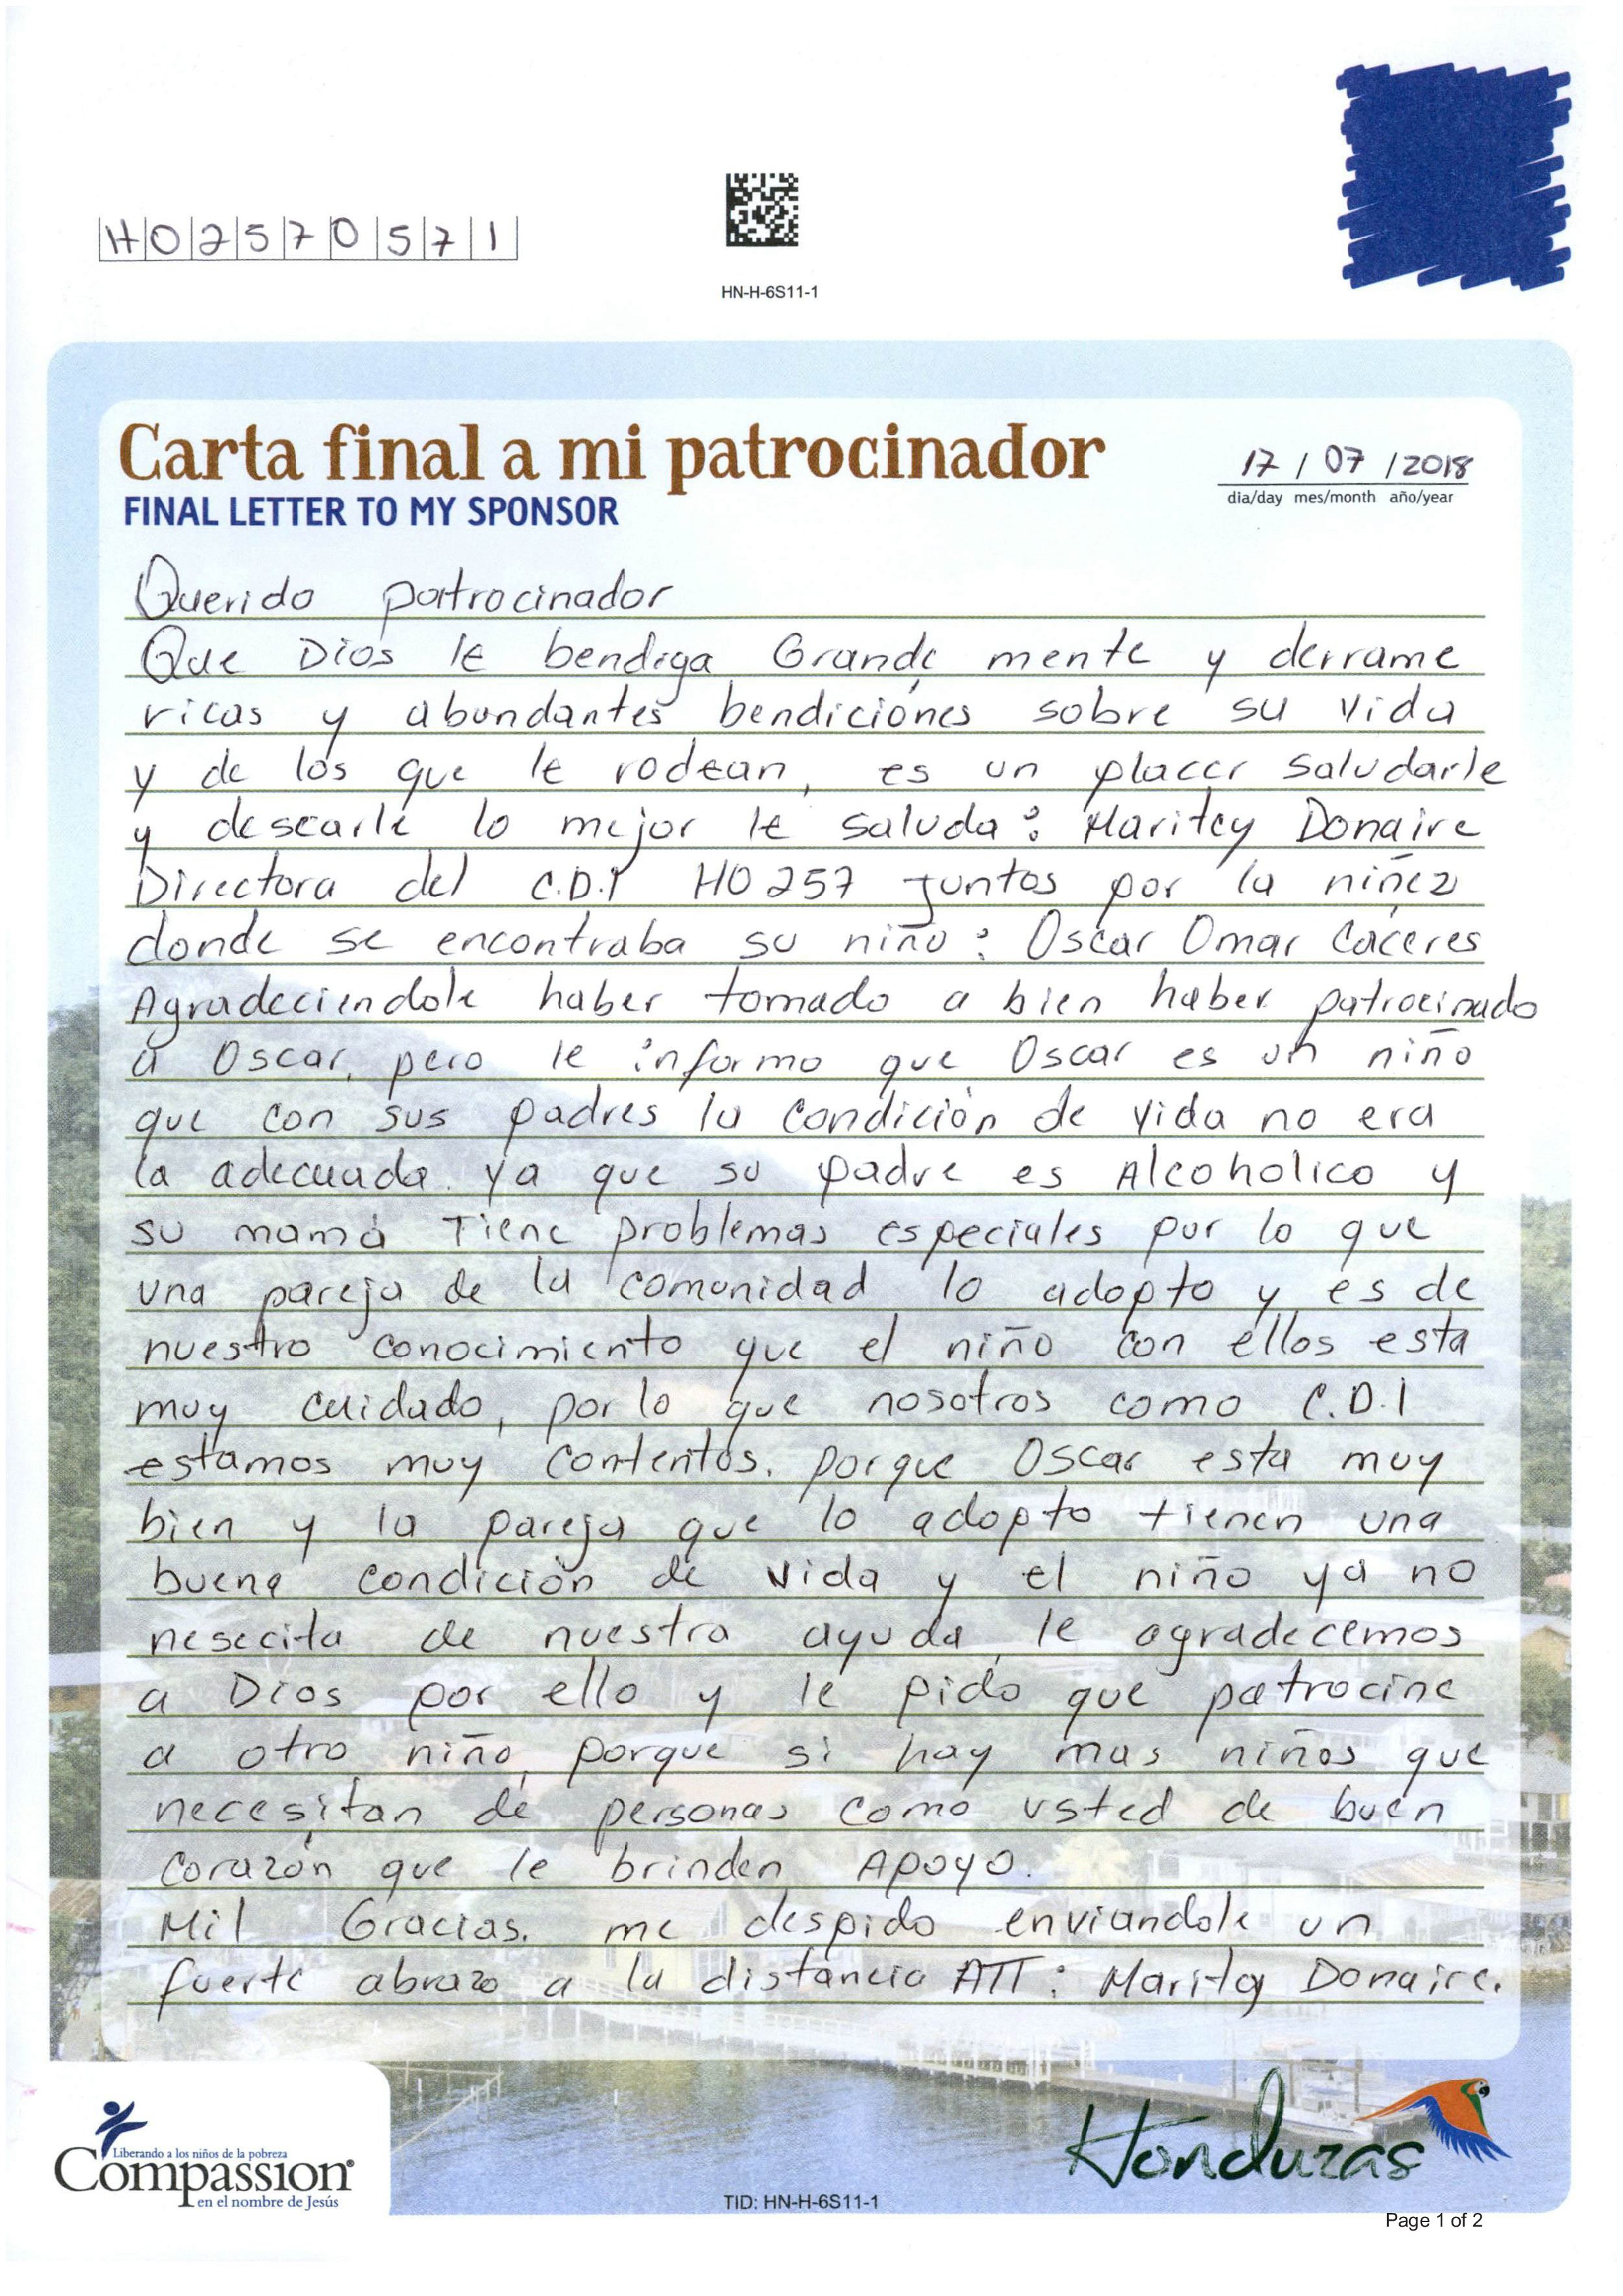 HO2570571
HN-H-6S11-1
Carta final a mi patrocinador
FINAL LETTER TO MY SPONSOR
17 / 07 / 2018
dia/day mes/month año/year
Querido patrocinador
Que Dios le bendiga Grande mente y derrame
ricas y abundantes bendiciónes sobre su vida
y de los que le rodean, es un placer saludarle
y desearle lo mejor le saluda: Maritey Donaire
Directora del C.D.I HO 257 Juntos por la niñez
donde se encontraba su niño: Oscar Omar Caceres
Agradeciendole haber tomado a bien haber patrocinado
a Oscar, pero le informo que Oscar es un niño
que con sus padres la condición de vida no era
la adecuada. ya que su padre es Alcoholico y
su mamá Tiene problemas especiales por lo que
una pareja de la comunidad lo adopto y es de
nuestro conocimiento que el niño con ellos esta
muy cuidado, por lo que nosotros como C.D.I
estamos muy contentos. porque Oscar esta muy
bien y la pareja que lo adopto tienen una
buena condición de vida y el niño ya no
nesecita de nuestra ayuda, le agradecemos
a Dios por ello y le pido que patrocine
a otro niño, porque si hay mas niños que
necesitan de personas como usted de buen
corazón que le brinden Apoyo.
Mil Gracias. me despido enviandole un
fuerte abrazo a la distancia ATT: Maritey Donaire.
Liberando a los niños de la pobreza
Compassion®
en el nombre de Jesús
Honduras
TID: HN-H-6S11-1
Page 1 of 2